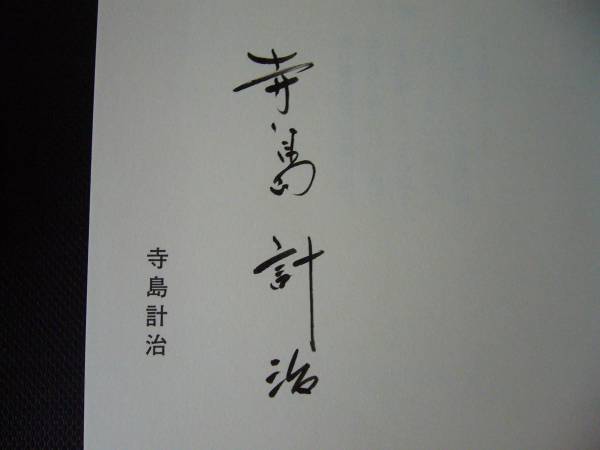 寺島計治
寺島計治